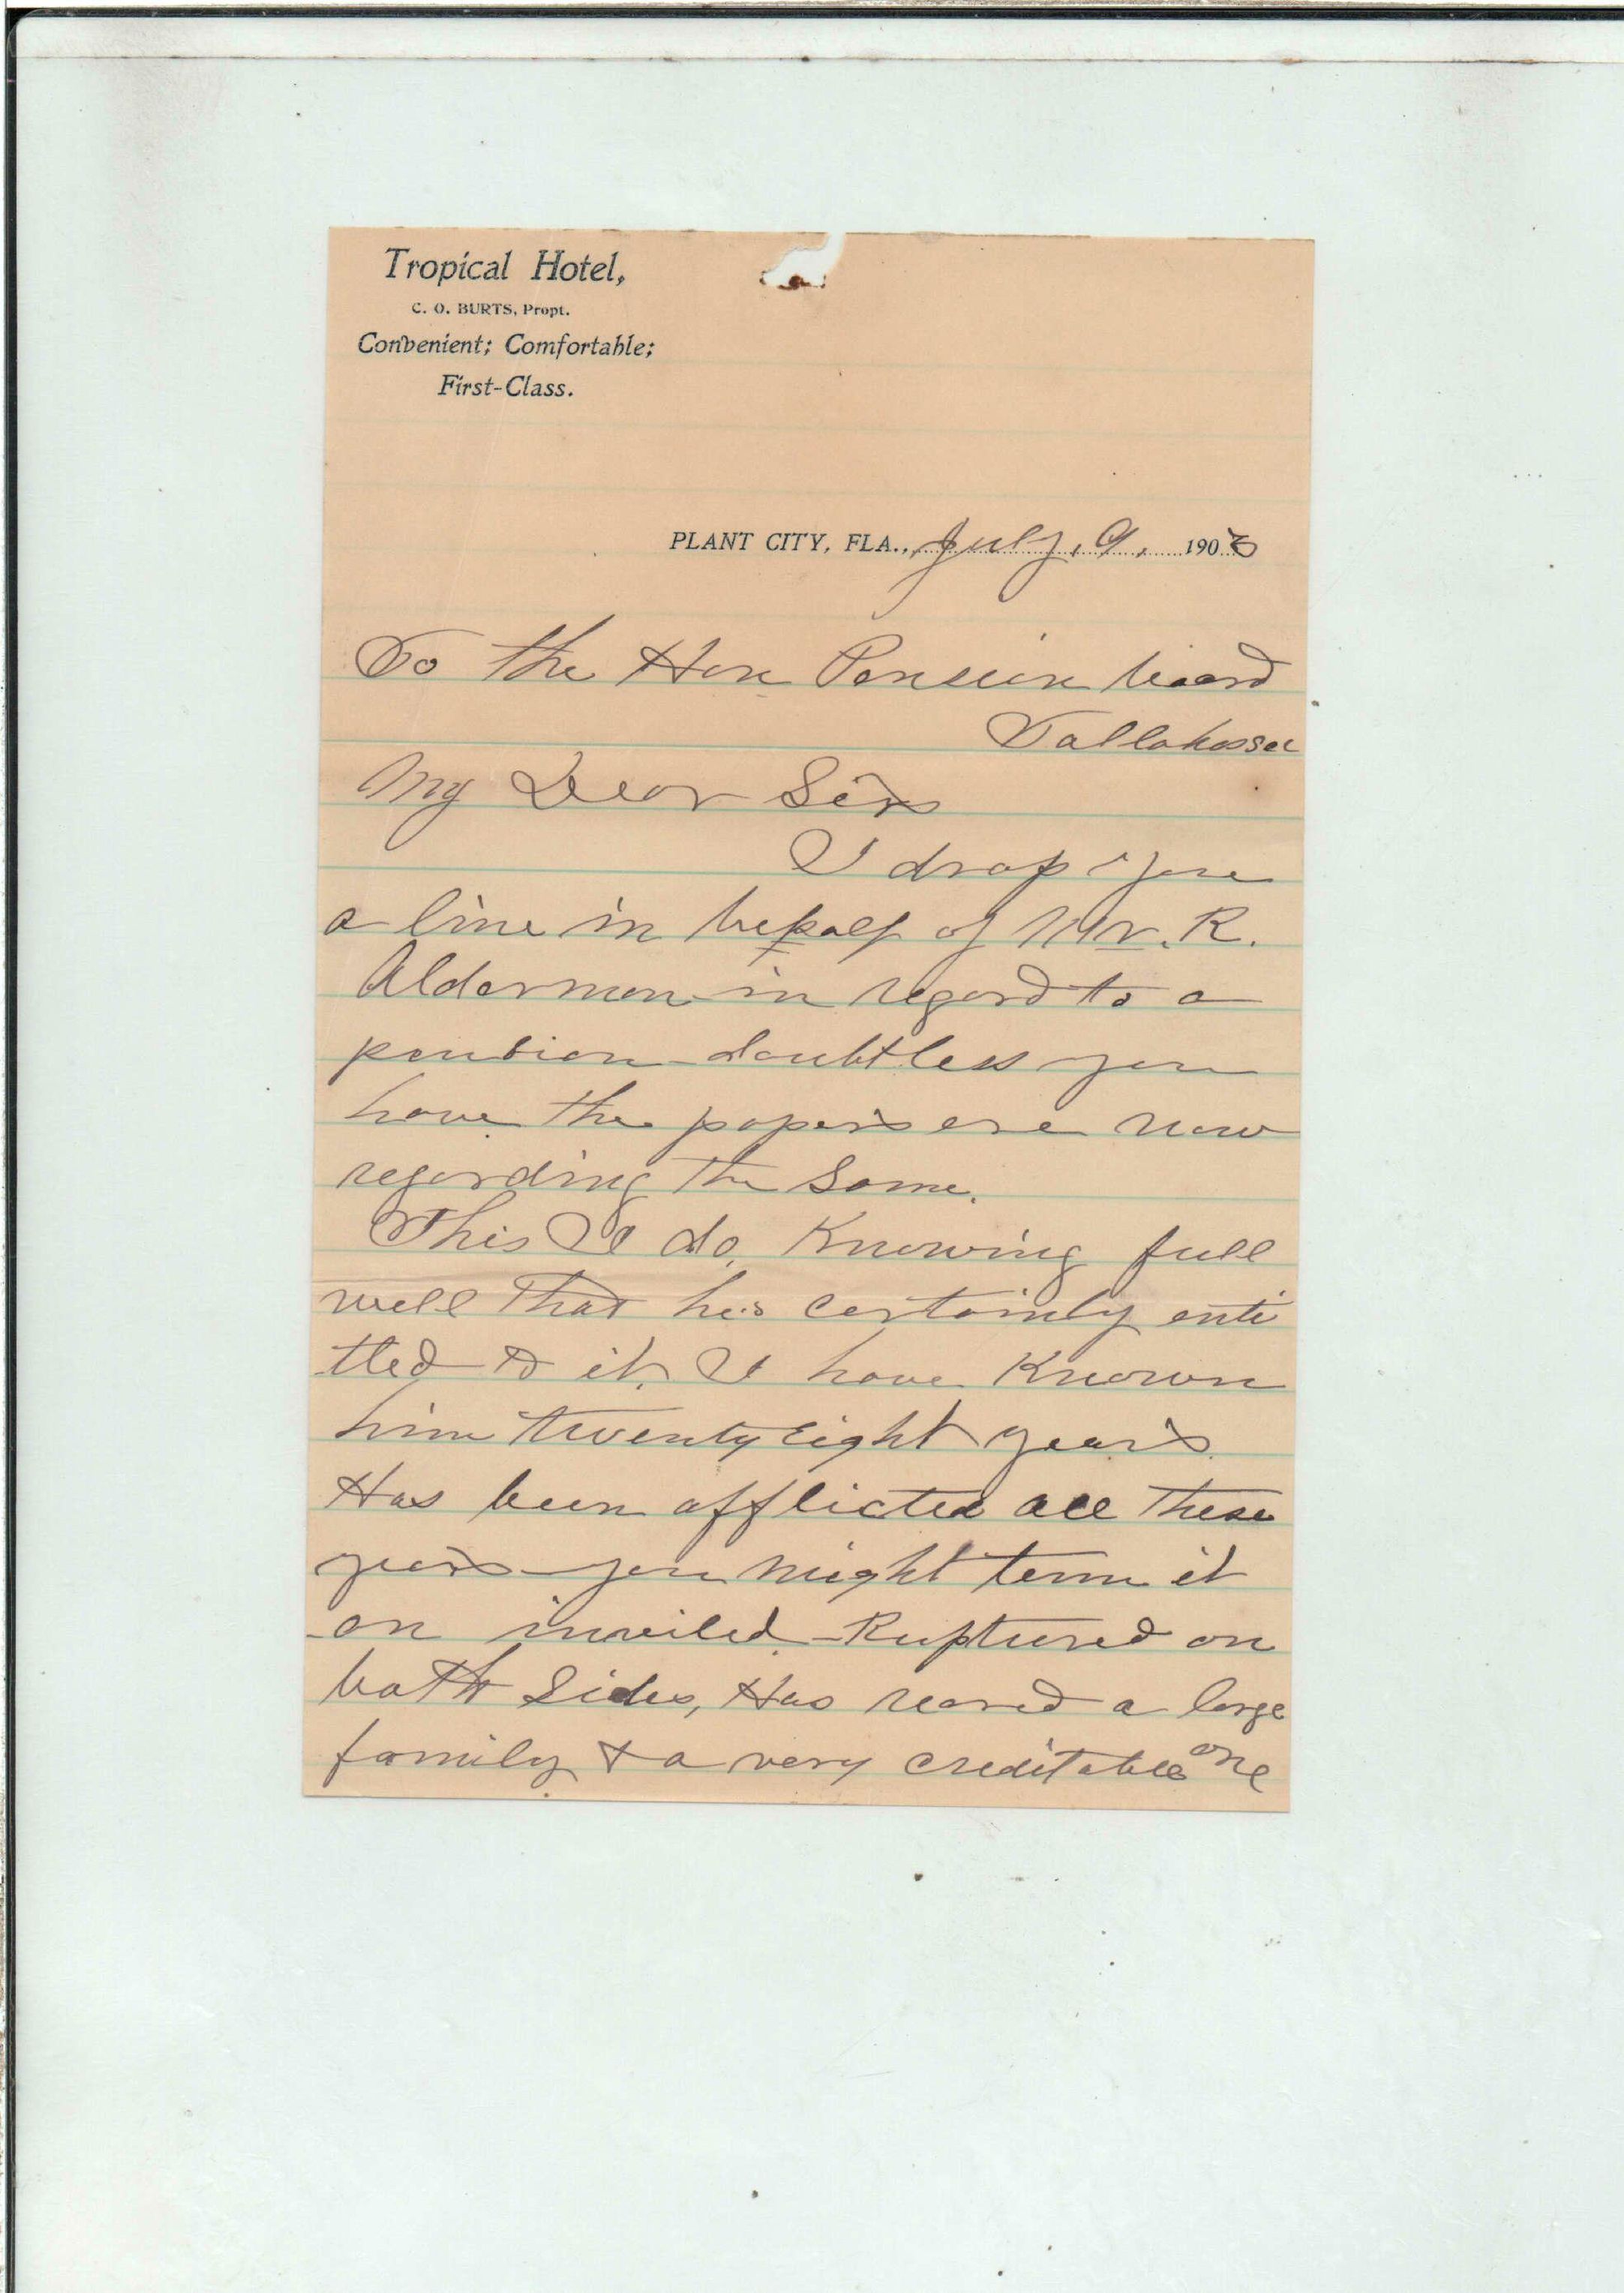 Tropical Hotel,
C. O. BURTS, Propt.
Convenient; Comfortable;
First-Class.
PLANT CITY, FLA., July, 9, 190
To the Hon Pension board
Tallahassee
My Dear Sirs
I drop you
a line in behalf of Mr. R.
Alderman in regard to a
pension doubtless you
have the papers ere now
regarding the same.
This I do, Knowing full
well that he's certainly enti
tled to it. I have Known
him twenty eight years.
Has been afflicted all these
years you might term it
an invilid - Ruptured on
both Sides, Has reared a large
family & a very creditable one